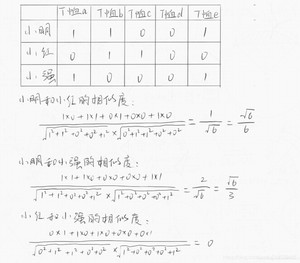 T恤a T恤b T恤c T恤d T恤e
小明 1 1 0 0 1
小红 0 1 1 0 0
小强 1 0 0 0 1
小明和小红的相似度：
1×0+1×1+0×1+0×0+1×0
√1²+1²+0²+0²+1² × √0²+1²+1²+0²+0² = 1/√6 = √6/6
小明和小强的相似度：
1×1+1×0+0×0+0×0+1×1
√1²+1²+0²+0²+1² × √1²+0²+0²+0²+1² = 2/√6 = √6/3
小红和小强的相似度：
0×1+1×0+1×0+0×0+0×1
√0²+1²+1²+0²+0² × √1²+0²+0²+0²+1² = 0